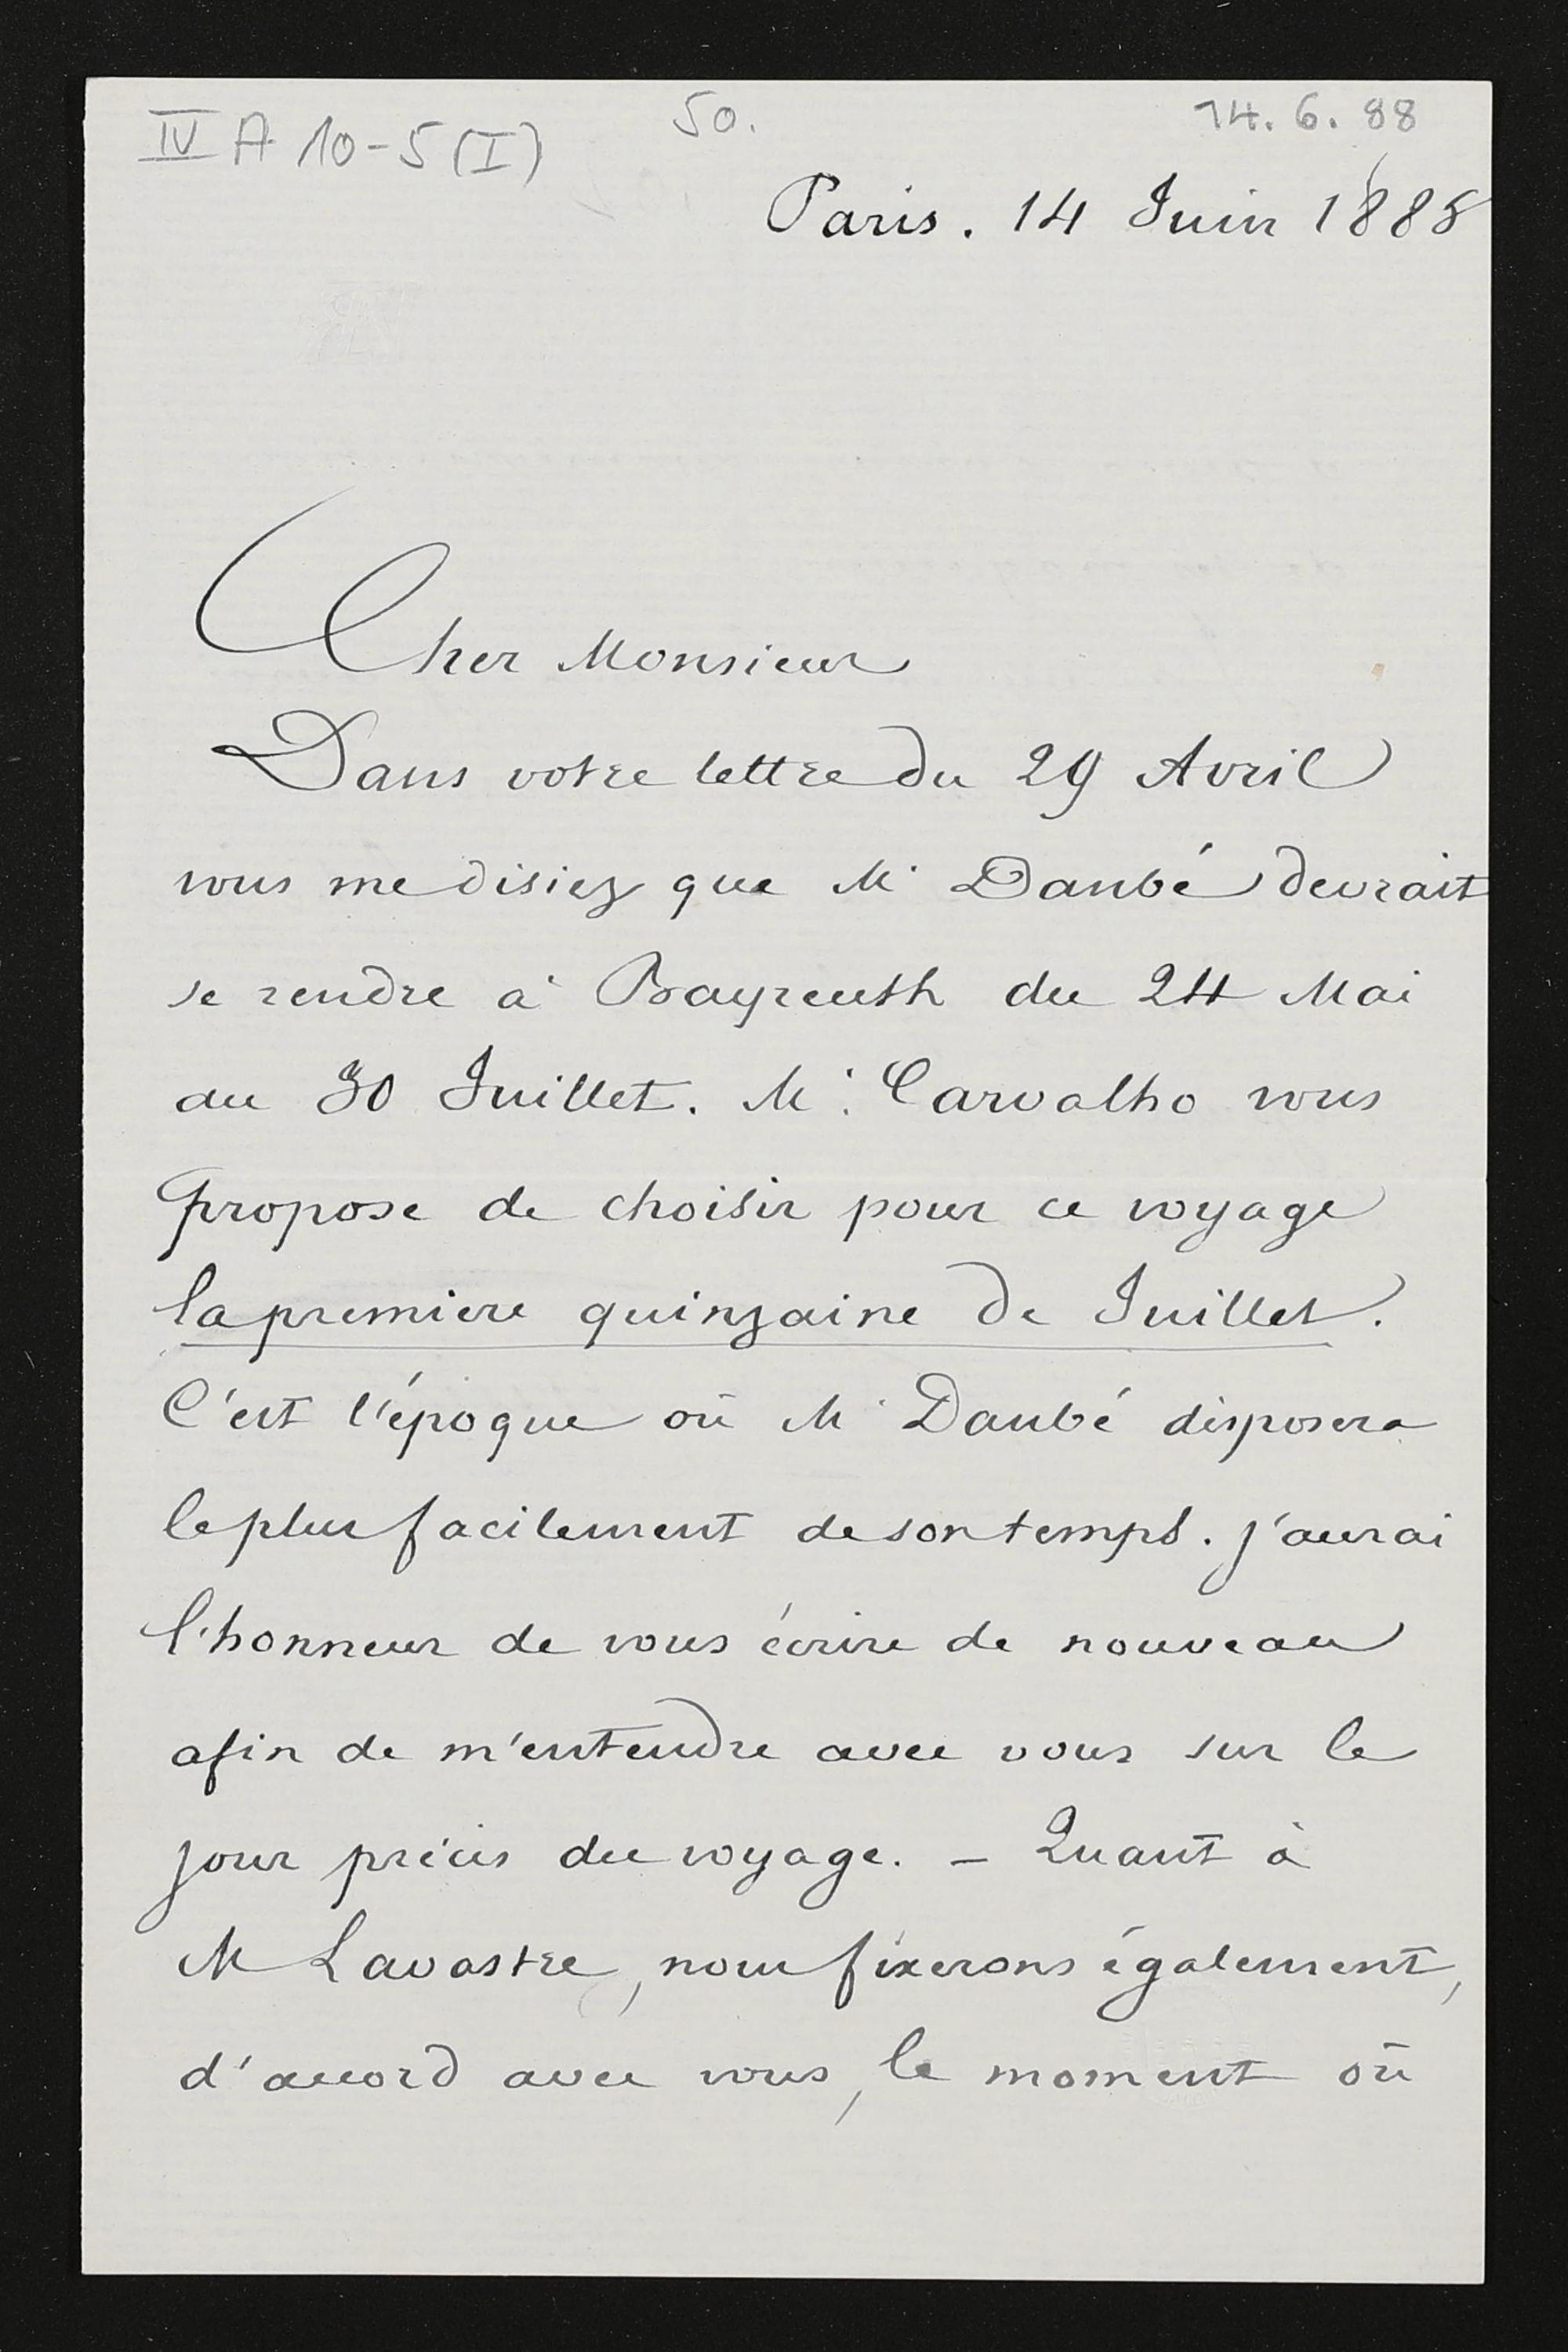 IV A 10-5 (I)
50.
14. 6. 88
Paris. 14 Juin 1888
Cher Monsieur
Dans votre lettre du 29 Avril
vous me disiez que Mr Danbé devrait
se rendre à Bayreuth du 24 Mai
au 30 Juillet. Mr. Carvalho vous
propose de choisir pour ce voyage
la premiere quinzaine de Juillet.
C'est l'époque où Mr Danbé disposera
le plus facilement de son temps. j'aurai
l'honneur de vous écrire de nouveau
afin de m'entendre avec vous sur le
jour précis du voyage. – Quant à
M Lavastre, nous fixerons également,
d'accord avec vous, le moment où